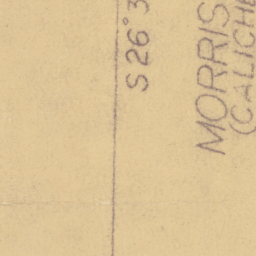 S 26° 3
MORRIS
(CALICHE